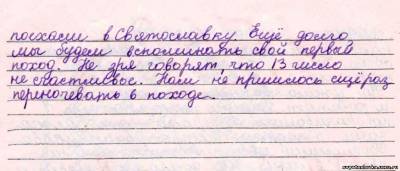 поехали в Святославку. Ещё долго
мы будем вспоминать свой первый
поход. Не зря говорят, что 13 число
не счастливое. Нам не пришлось ещё раз
переночевать в походе.